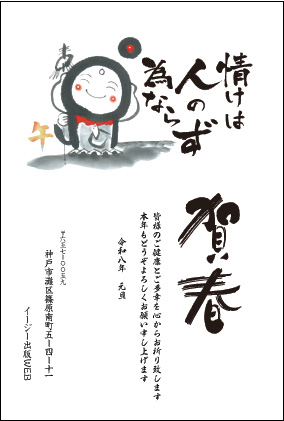 情けは
人の
為ならず
午
賀春
皆様のご健康とご多幸を心からお祈り致します
本年もどうぞよろしくお願い申し上げます
令和八年 元旦
〒六五七-〇〇五九
神戸市灘区篠原南町五-四-十一
イージー出版WEB